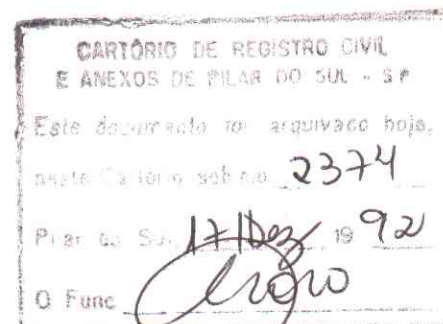 CARTÓRIO DE REGISTRO CIVIL
E ANEXOS DE PILAR DO SUL - SP
Este documento foi arquivado hoje,
neste Cartório sob no 2374
Pilar do Sul, 17/Dez/ 19 92
O Func